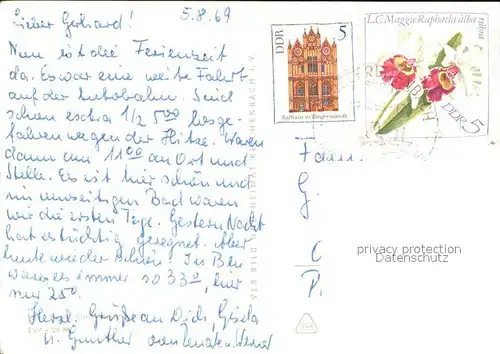 Lieber Gerhard! 5.8.69
Nun ist die Ferienzeit
da. Es war eine weite Fahrt
auf der Autobahn. Sind
schon extra 1/2 5 00 losge-
fahren wegen der Hitze. Waren
dann um 11 00 an Ort und
Stelle. Es ist hier schön und
im Bad waren
wir die ersten Tage. Gestern Nacht
hat es tüchtig geregnet. Aber
heute wieder schön! In Bln
waren es immer so 33°, hier
nur 25°.
Herzl. Grüße an Dich, Gisela
u. Gunther von Renate u. Bernd
DDR 5
Rathaus in Tangermünde
L.C. Maggie Raphaela alba
DDR 5
VEB BILD UND HEIMAT REICHENBACH I. V.
Fam.
G.
privacy protection
VDMedien24.de